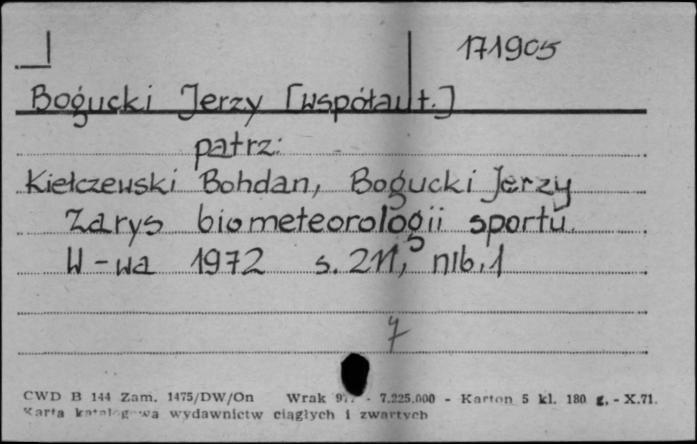 171905
Bogucki Jerzy [współaut.]
patrz:
Kiełczewski Bohdan, Bogucki Jerzy
Zarys biometeorologii sportu.
W-wa 1972 s. 211, nlb. 1
7
CWD B 144 Zam. 1475/DW/On Wrak - 7.225.000 - Karton 5 kl. 180 g. - X.71.
Karta katalogowa wydawnictw ciągłych i zwartych